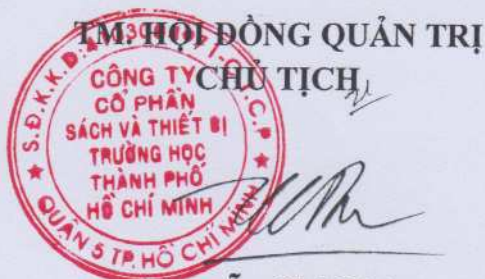 TM. HỘI ĐỒNG QUẢN TRỊ
CHỦ TỊCH
CÔNG TY
CỔ PHẦN
SÁCH VÀ THIẾT BỊ
TRƯỜNG HỌC
THÀNH PHỐ
HỒ CHÍ MINH
QUẬN 5 TP. HỒ CHÍ MINH